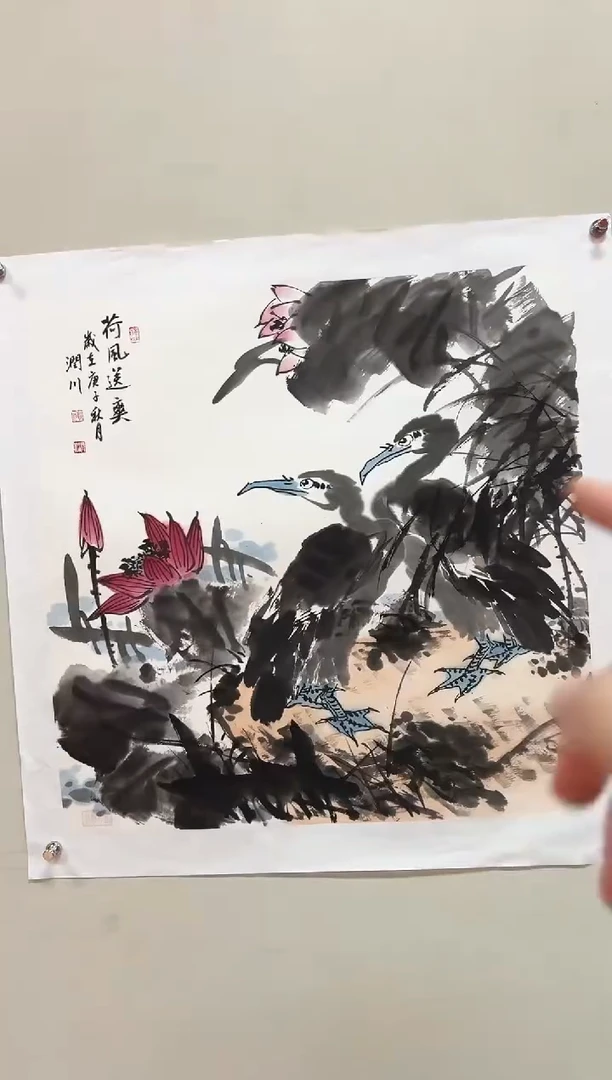 荷風送爽
歲在庚子秋月
潤川